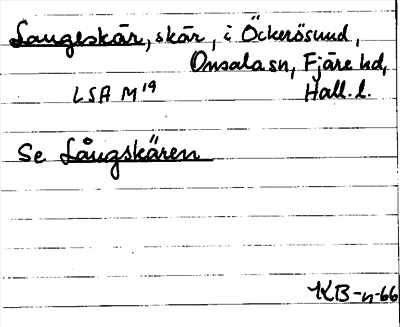 Laugeskär, skär, i Öckerösund,
Onsala sn, Fjäre hd,
LSA M 19 Hall. l.
Se Långskären
KB-n-66